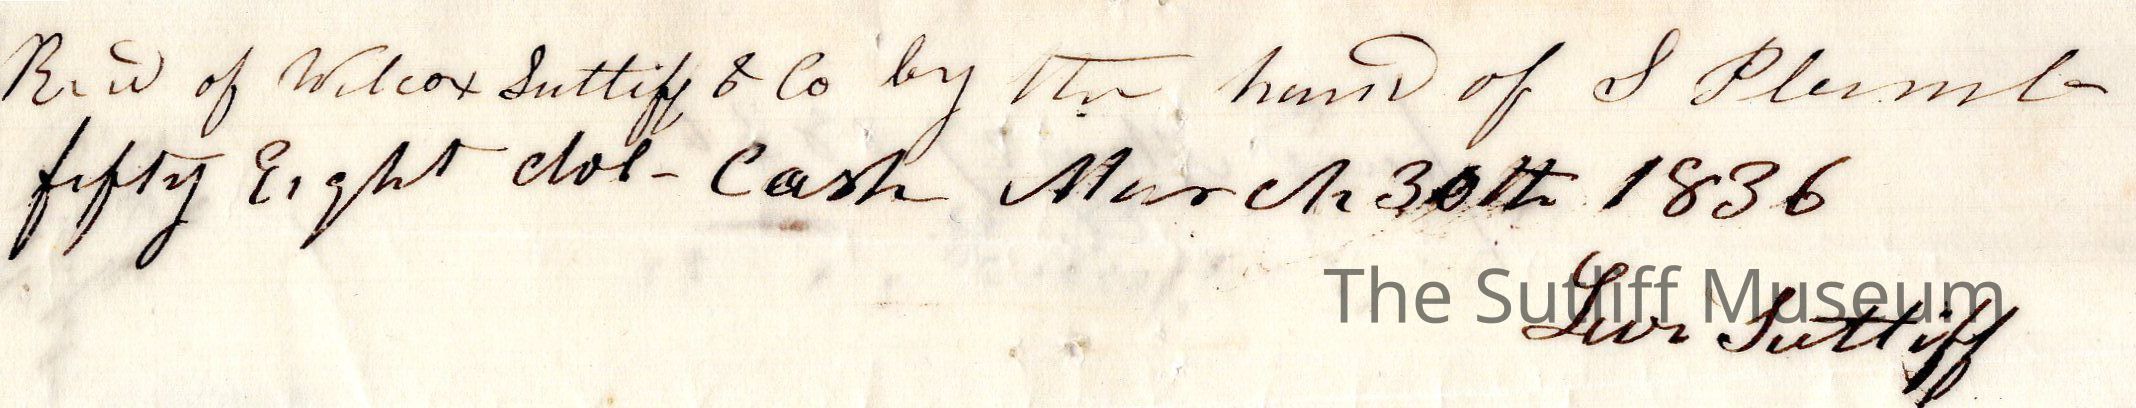 Rec'd of Wilcox Suttiff & Co by the hand of S Plumb
fifty Eight dol- Cash March 30th 1836
The Sutliff Museum
Levi Suttiff